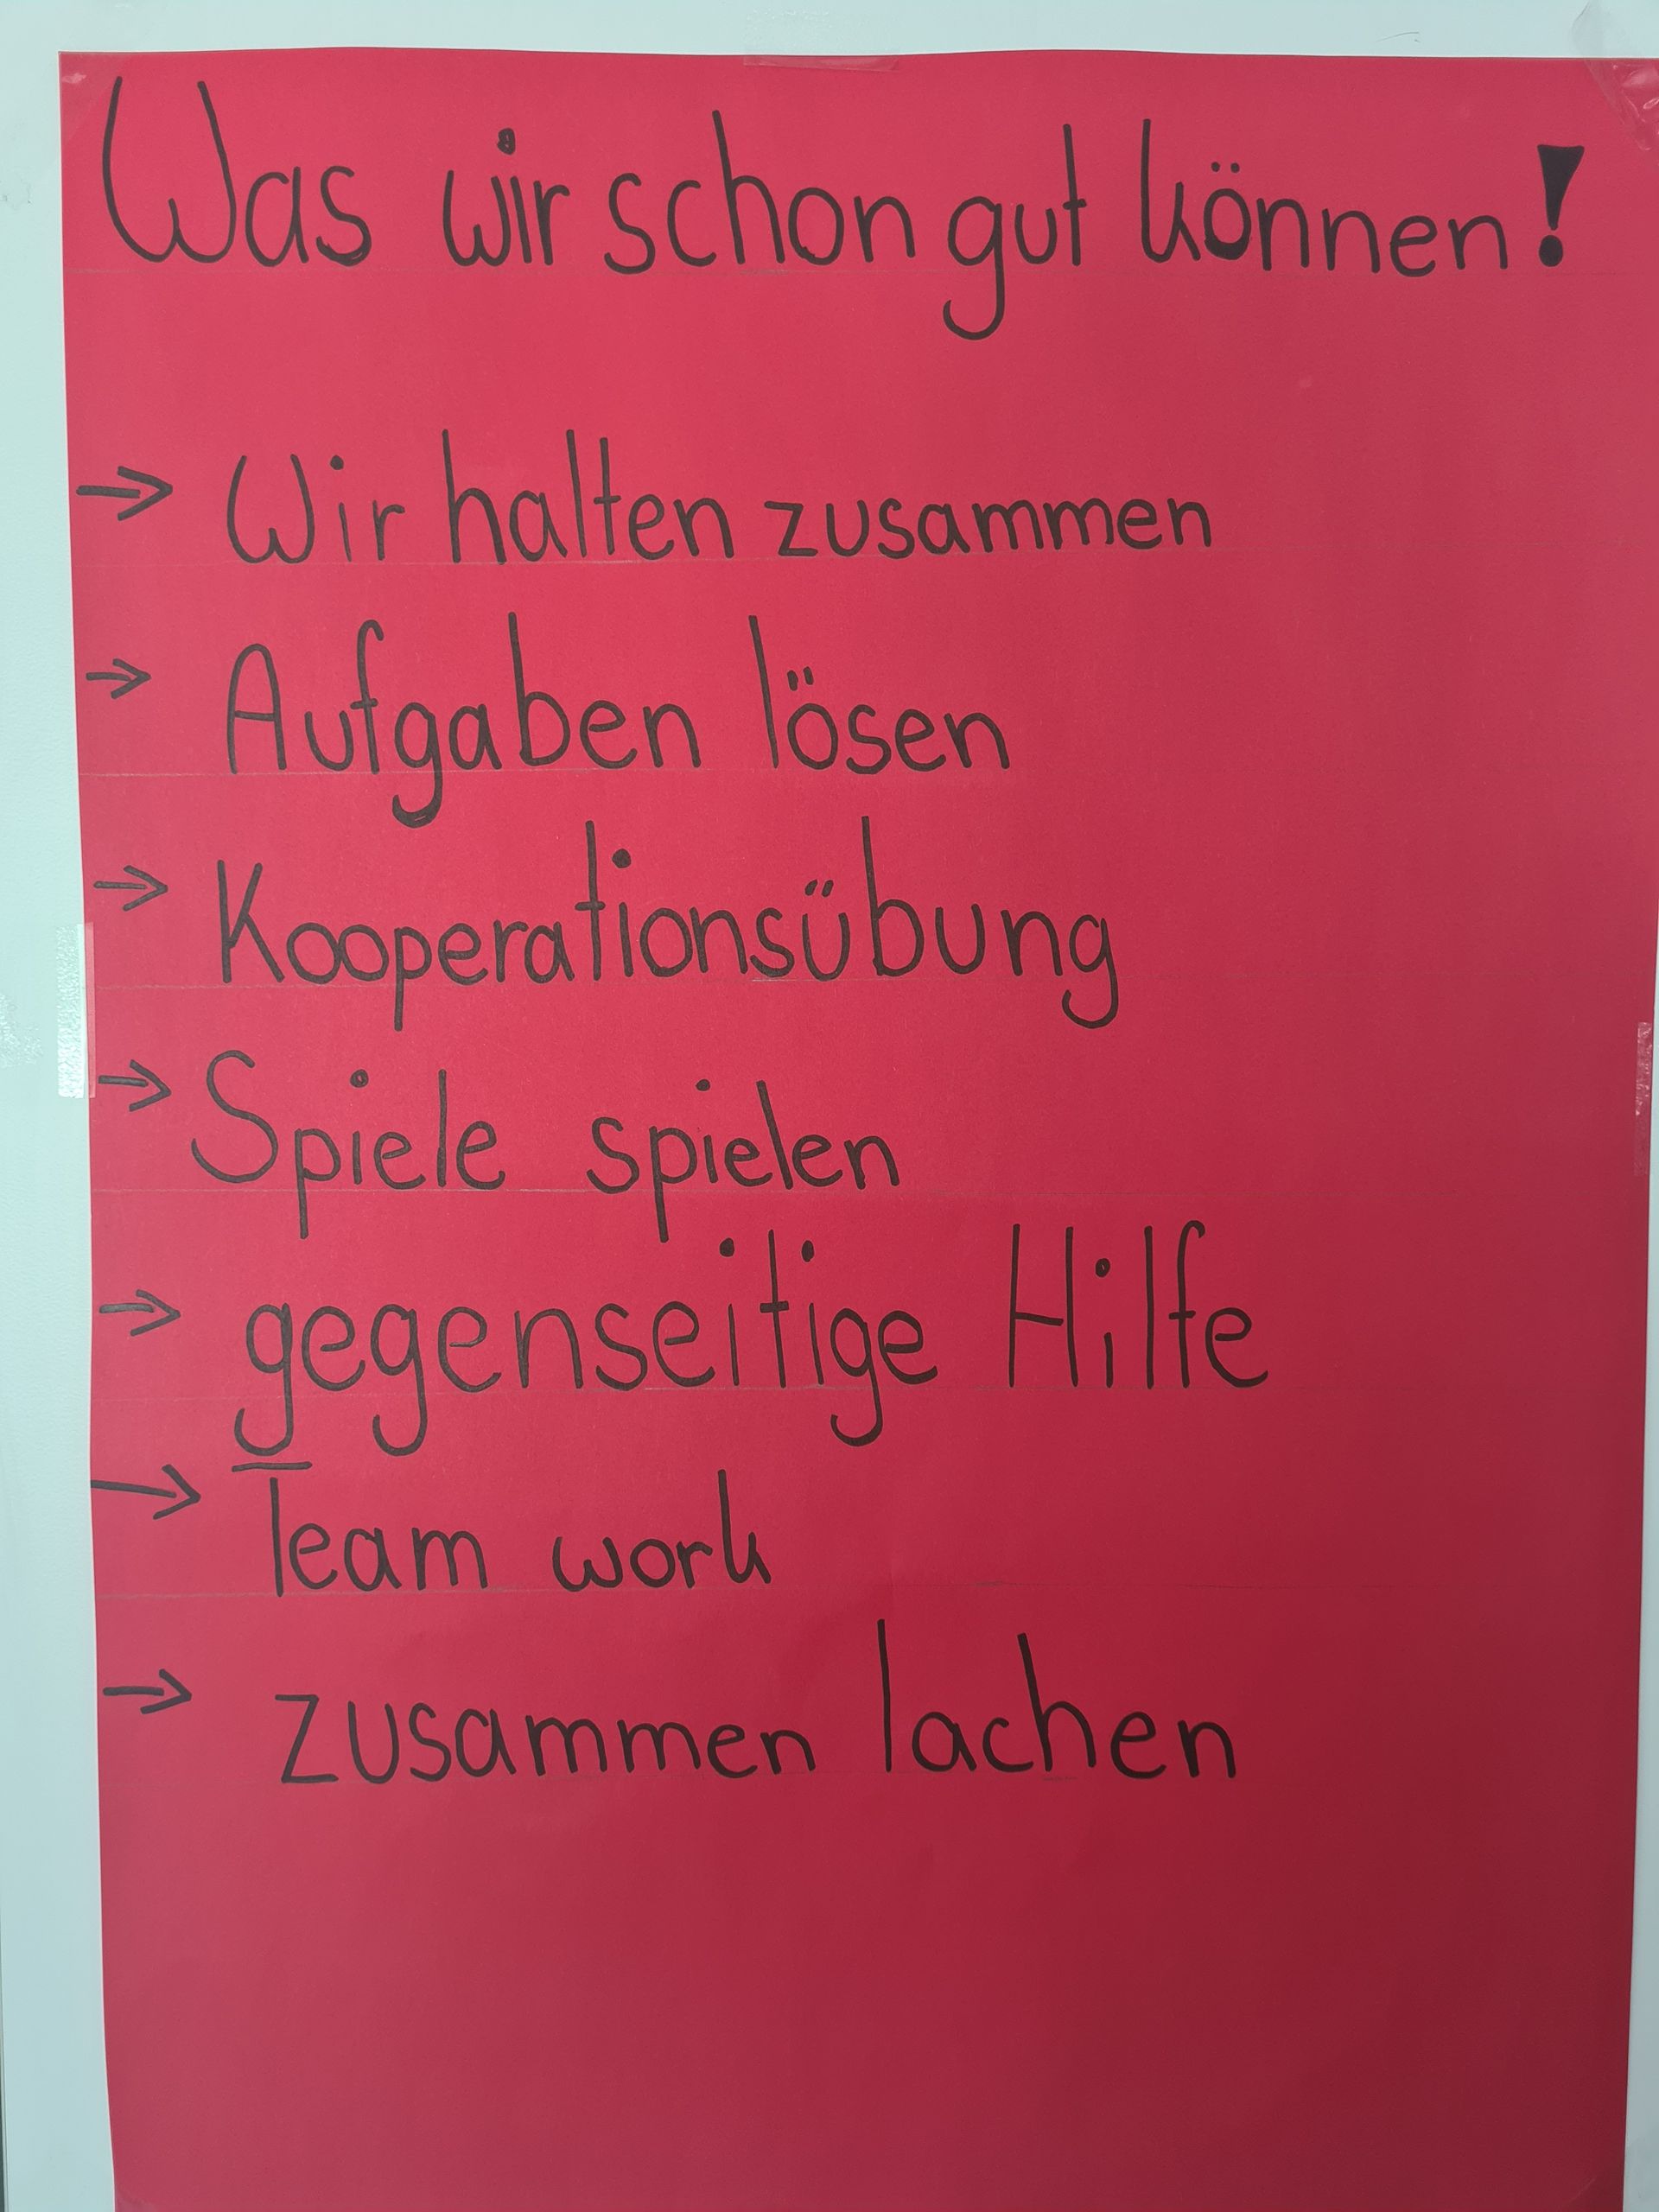 Was wir schon gut können!
→ Wir halten zusammen
→ Aufgaben lösen
→ Kooperationsübung
→ Spiele spielen
→ gegenseitige Hilfe
→ Team work
→ zusammen lachen